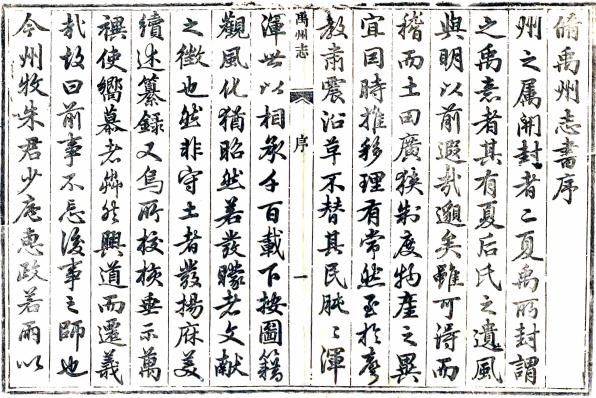 脩禹州志書序
州之属開封者二夏禹所封謂
之禹意者其有夏后氏之遺風
與明以前遐哉邈矣雖可得而
稽而土田廣狹制度物產之異
宜因時推移理有常然至於
教肅震沿革不替其民渾
禹州志
序
一
渾世以相承千百載下按圖籍
觀風化猶昭然若發矇者文献
之徵也然非守土者發揚庥美
續述纂錄又烏所校核垂示萬
禩使嚮慕者然興道而遷義
哉故曰前事不忘後事之師也
今州牧朱君少庵惠政若雨以